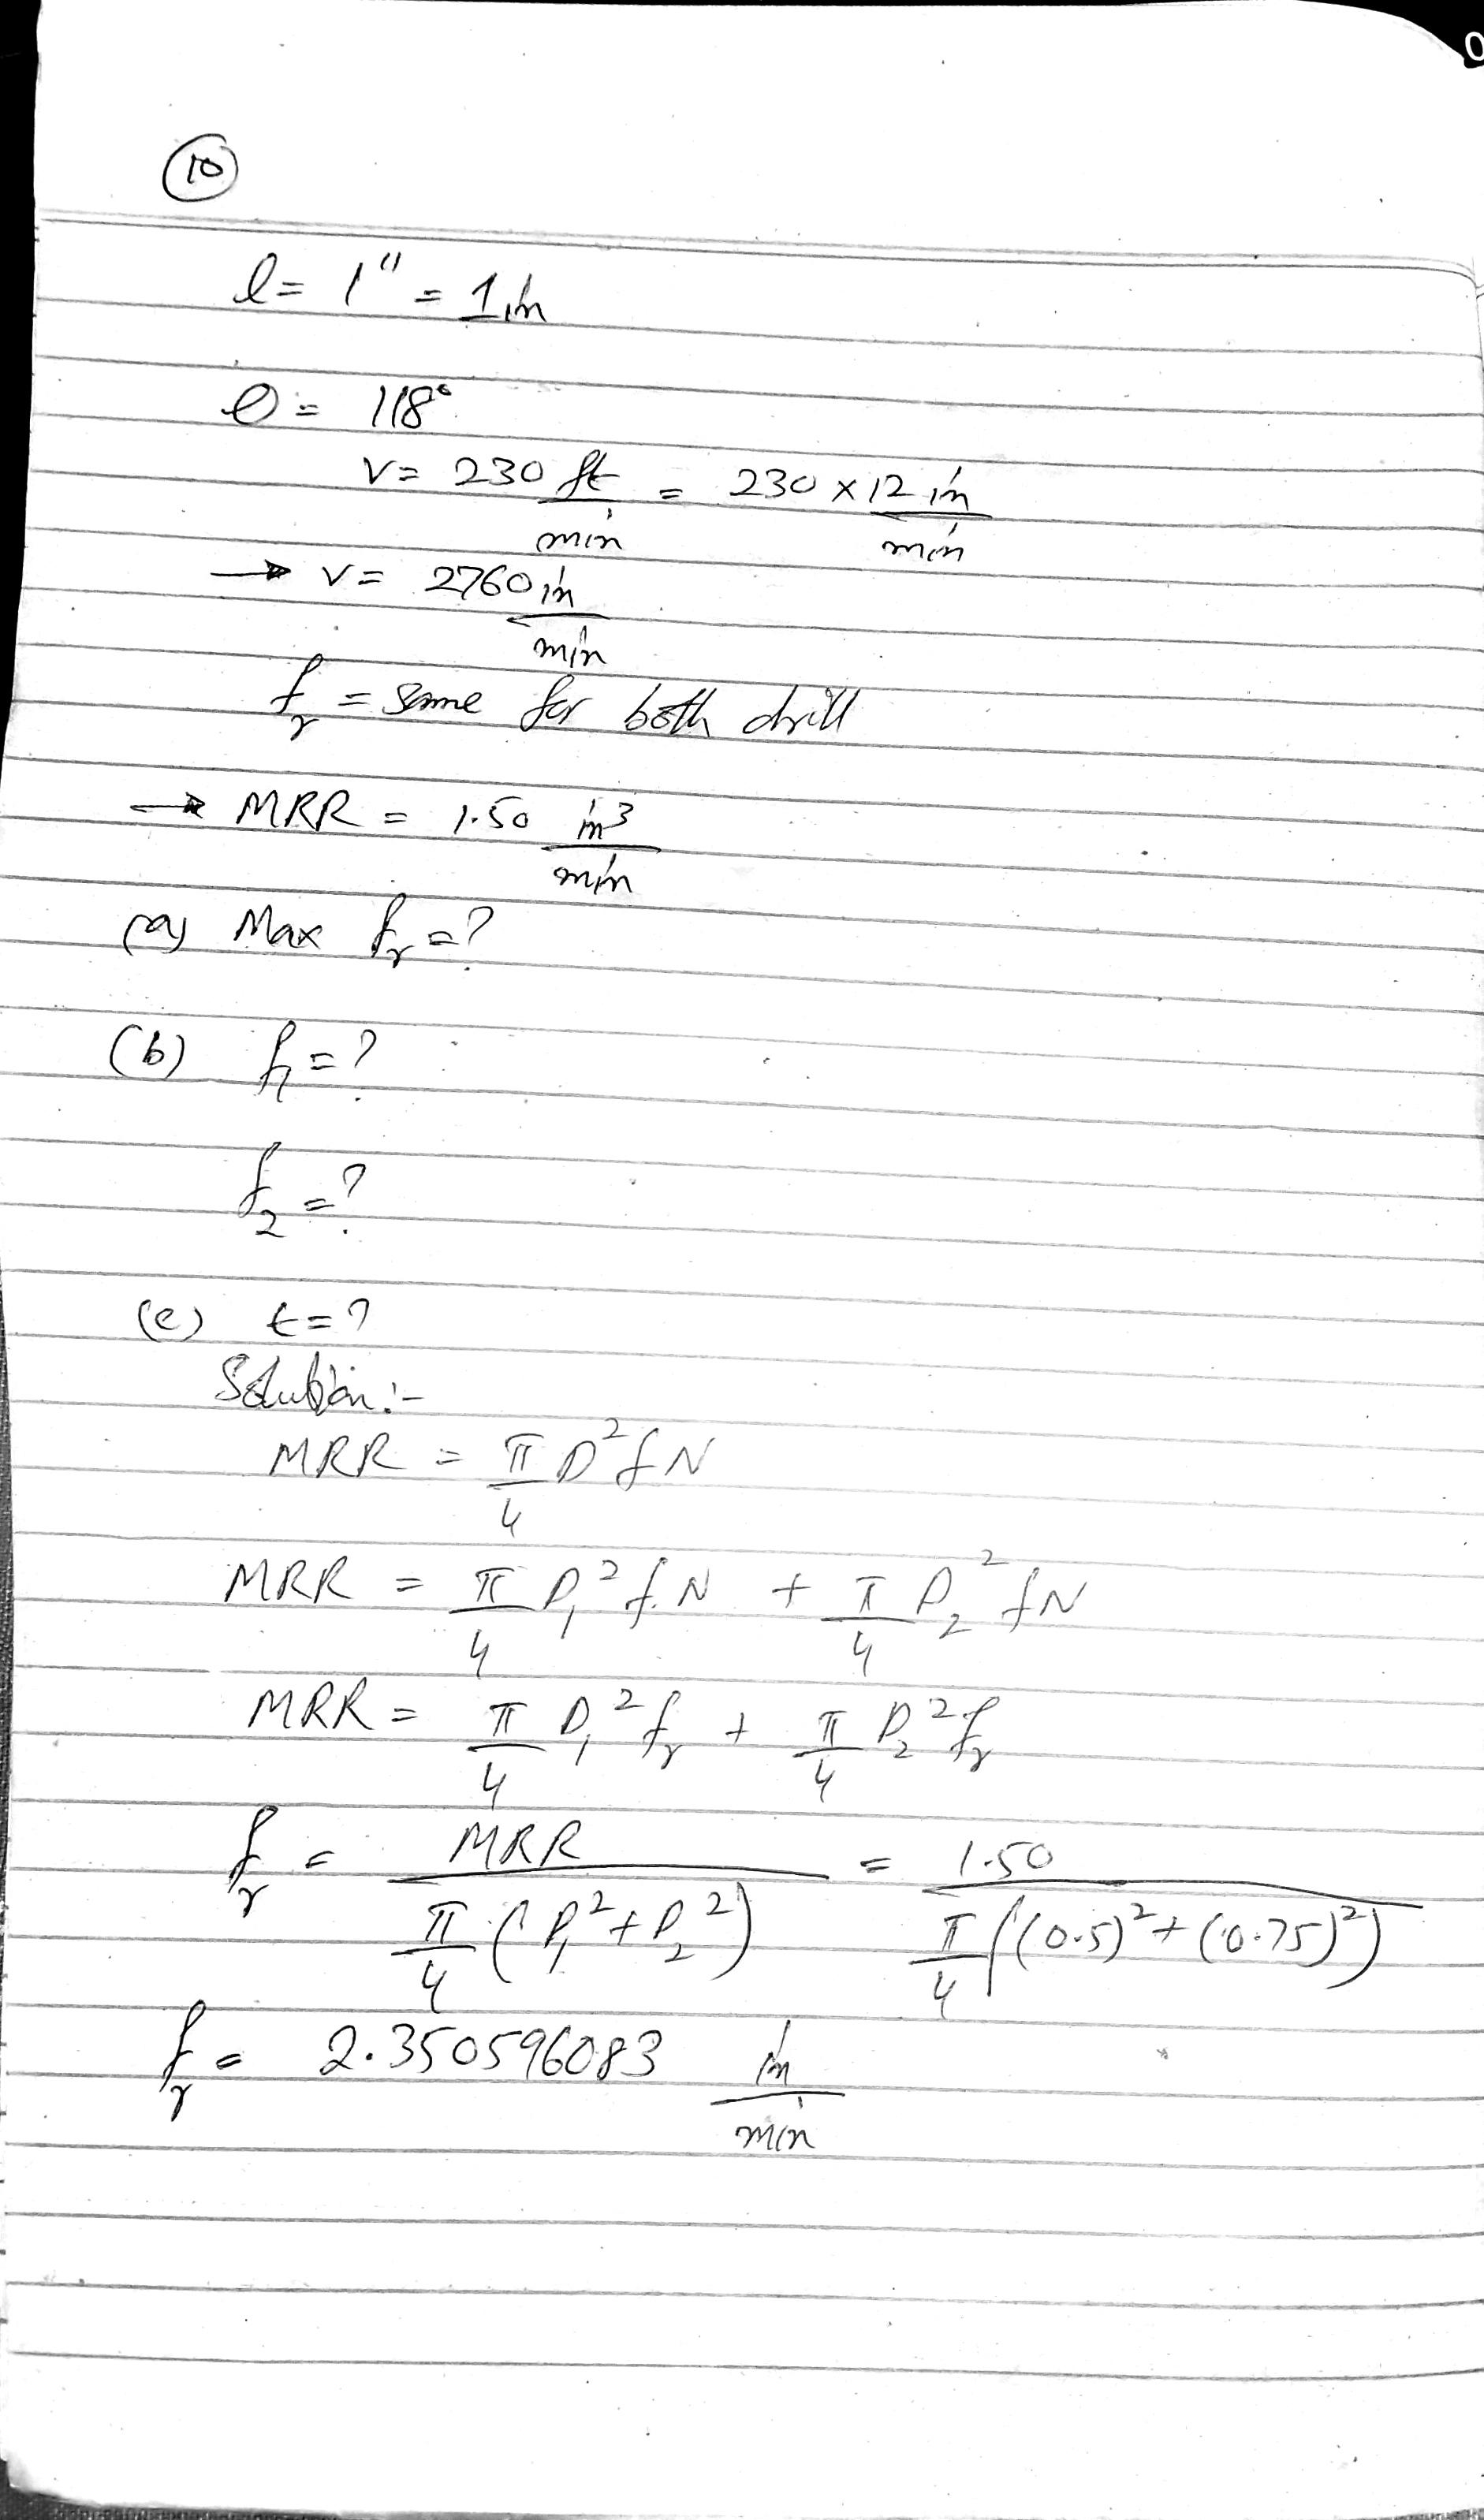 10
l = 1" = 1 in
θ = 118°
v = 230 ft/min = 230 × 12 in/min
→ v = 2760 in/min
f_r = same for both drill
→ MRR = 1.50 in³/min
(a) Max f_r = ?
(b) f_1 = ?
f_2 = ?
(c) t = ?
Solution:-
MRR = π/4 D² f N
MRR = π/4 D₁² f N + π/4 D₂² f N
MRR = π/4 D₁² f_r + π/4 D₂² f_r
f_r = MRR / (π/4 (D₁² + D₂²)) = 1.50 / (π/4 ((0.5)² + (0.75)²))
f_r = 2.350596083 in/min